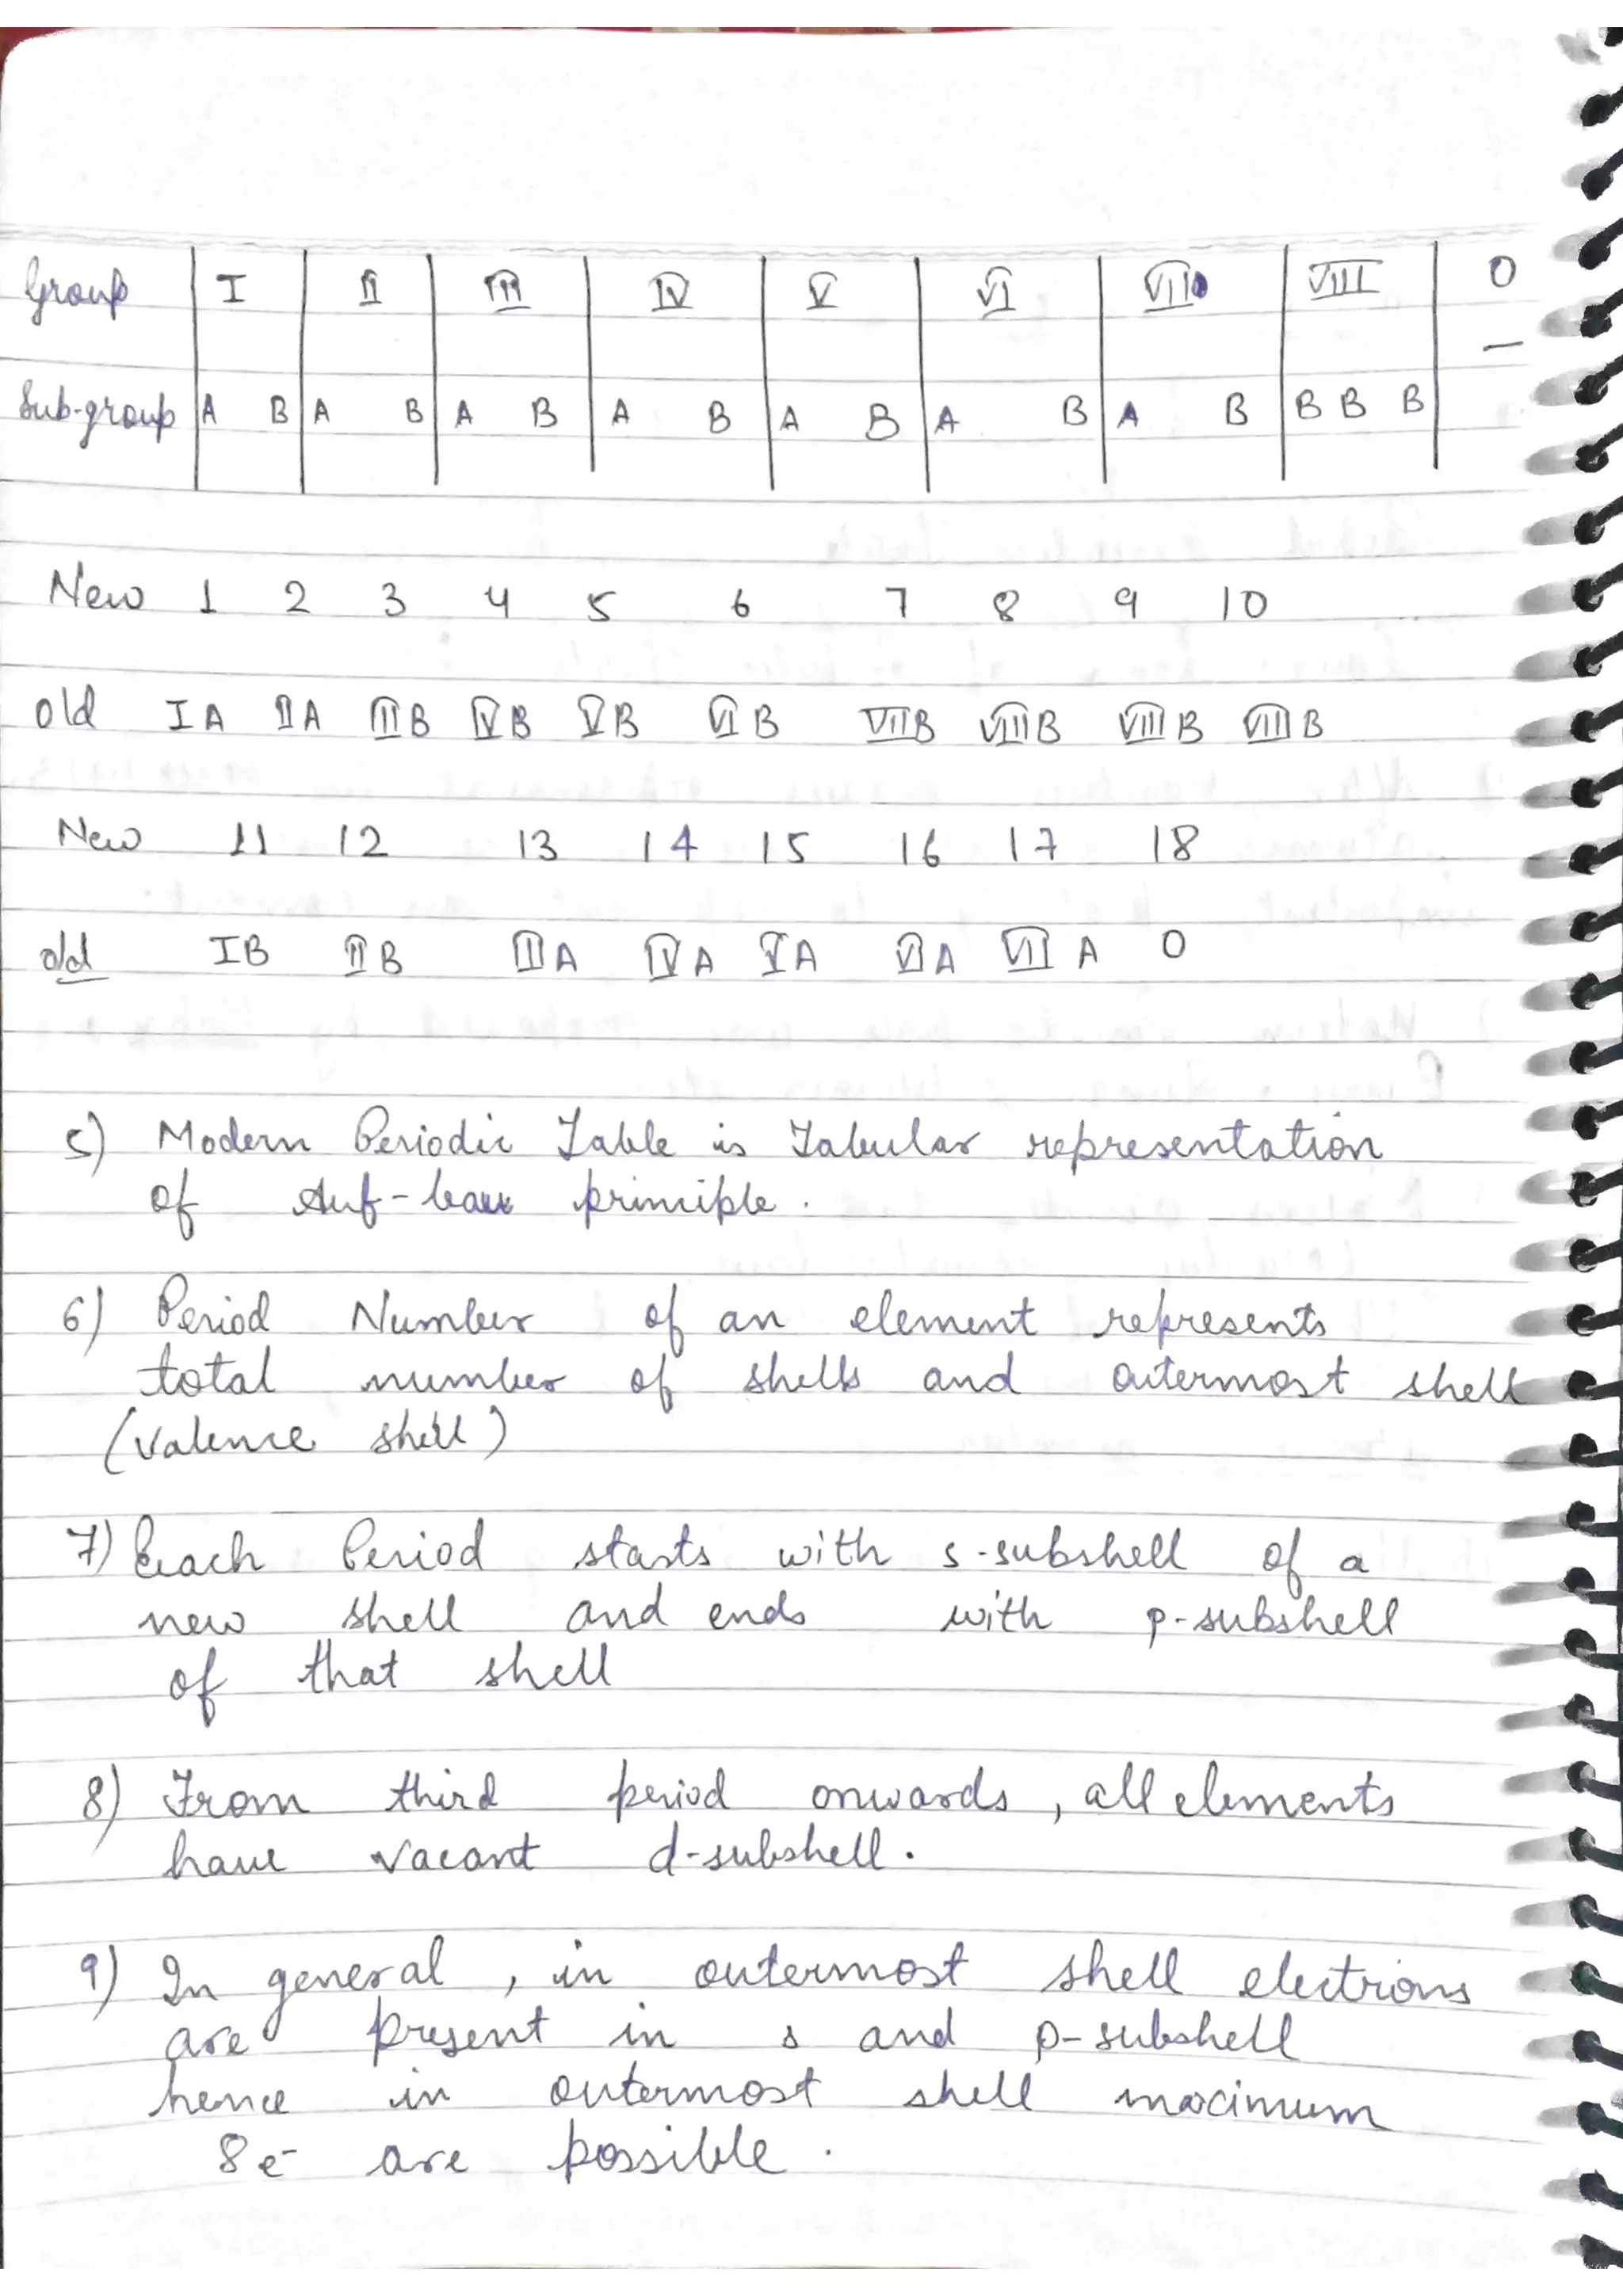 Group I II III IV V VI VII VIII 0
—
Sub-group A B A B A B A B A B A B A B B B B
New 1 2 3 4 5 6 7 8 9 10
old IA IIA IIIB IVB VB VIB VIIB VIIIB VIIIB VIIIB
New 11 12 13 14 15 16 17 18
old IB IIB IIIA IVA VA VIA VIIA 0
5) Modern Periodic Table is Tabular representation
of Auf-bau principle.
6) Period Number of an element represents
total number of shells and outermost shell
(Valence shell)
7) Each Period starts with s-subshell of a
new shell and ends with p-subshell
of that shell
8) From third period onwards, all elements
have vacant d-subshell.
9) In general, in outermost shell electrons
are present in s and p-subshell
hence in outermost shell maximum
8e- are possible.